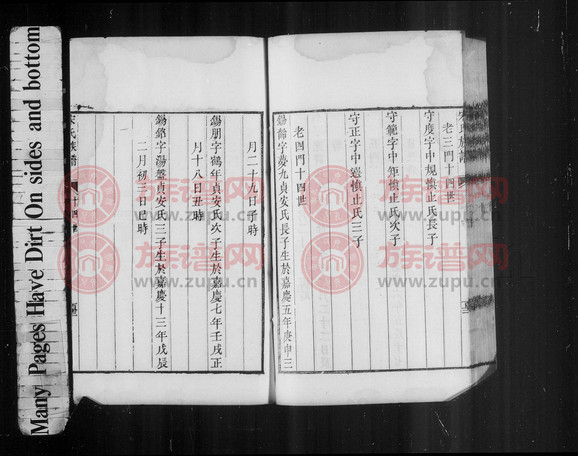 Many Pages Have Dirt On sides and bottom
老三門十四世
守度字中規慎止氏長子
守範字中矩慎止氏次子
守正字中憲慎止氏三子
老四門十四世
錫齡字慶九貞安氏長子生於嘉慶五年庚申三
月二十九日子時
錫朋字鶴年貞安氏次子生於嘉慶七年壬戌正
月十八日丑時
錫銘字湯盤貞安氏三子生於嘉慶十三年戊辰
二月初三日巳時
宋氏族譜
十四世
族谱网
www.zupu.cn
族谱网
www.zupu.cn
族谱网
www.zupu.cn
族谱网
www.zupu.cn